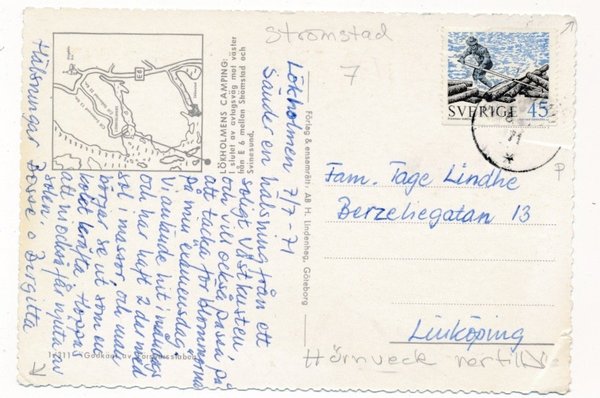 Strömstad
7
LÖKHOLMENS CAMPING:
I slutet av avtagsväg mot väster
från E 6 mellan Strömstad och
Svinesund.
E6
Lökholmen 7/7-71
Sänder en hälsning från ett
soligt Västkusten,
och vill också passa på
att tacka för blommorna
på min examensdag.
Vi anlände hit i måndags
och har haft 2 dar med
sol massor, och man
börjar se ut som en
kokt kräfta. Hoppas
att ni också få njuta av
solen.
Hälsningar Bosse o Birgitta
Förlag & ensamrätt: AB H. Lindenhag, Göteborg
SVERIGE 45
71
Fam. Tage Lindhe
Berzeliegatan 13
Linköping
Hörnveck nertill
P